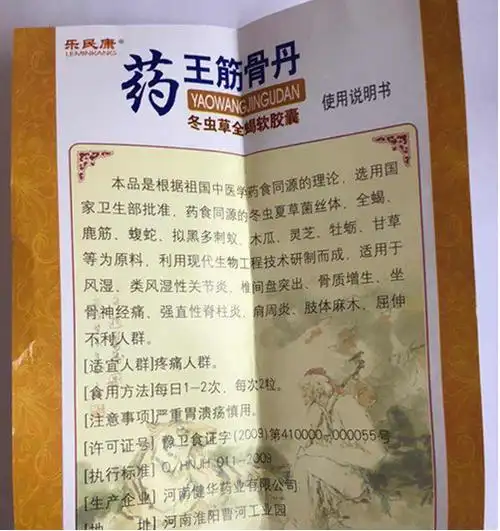 乐民康®
LEMINKANG
药王筋骨丹
YAOWANGJINGUDAN
冬虫草全蝎软胶囊
使用说明书
本品是根据祖国中医学药食同源的理论，选用国
家卫生部批准，药食同源的冬虫夏草菌丝体、全蝎、
鹿筋、蝮蛇、拟黑多刺蚁、木瓜、灵芝、牡蛎、甘草
等为原料，利用现代生物工程技术研制而成，适用于
风湿、类风湿性关节炎，椎间盘突出、骨质增生、坐
骨神经痛、强直性脊柱炎、肩周炎、肢体麻木、屈伸
不利人群。
[适宜人群]疼痛人群。
[食用方法]每日1-2次，每次2粒。
[注意事项]严重胃溃疡慎用。
[许可证号] 豫卫食证字(2009)第410000-000055号
[执行标准] Q/HNJH 011-2009
[生产企业] 河南健华药业有限公司
[地 址] 河南淮阳曹河工业园